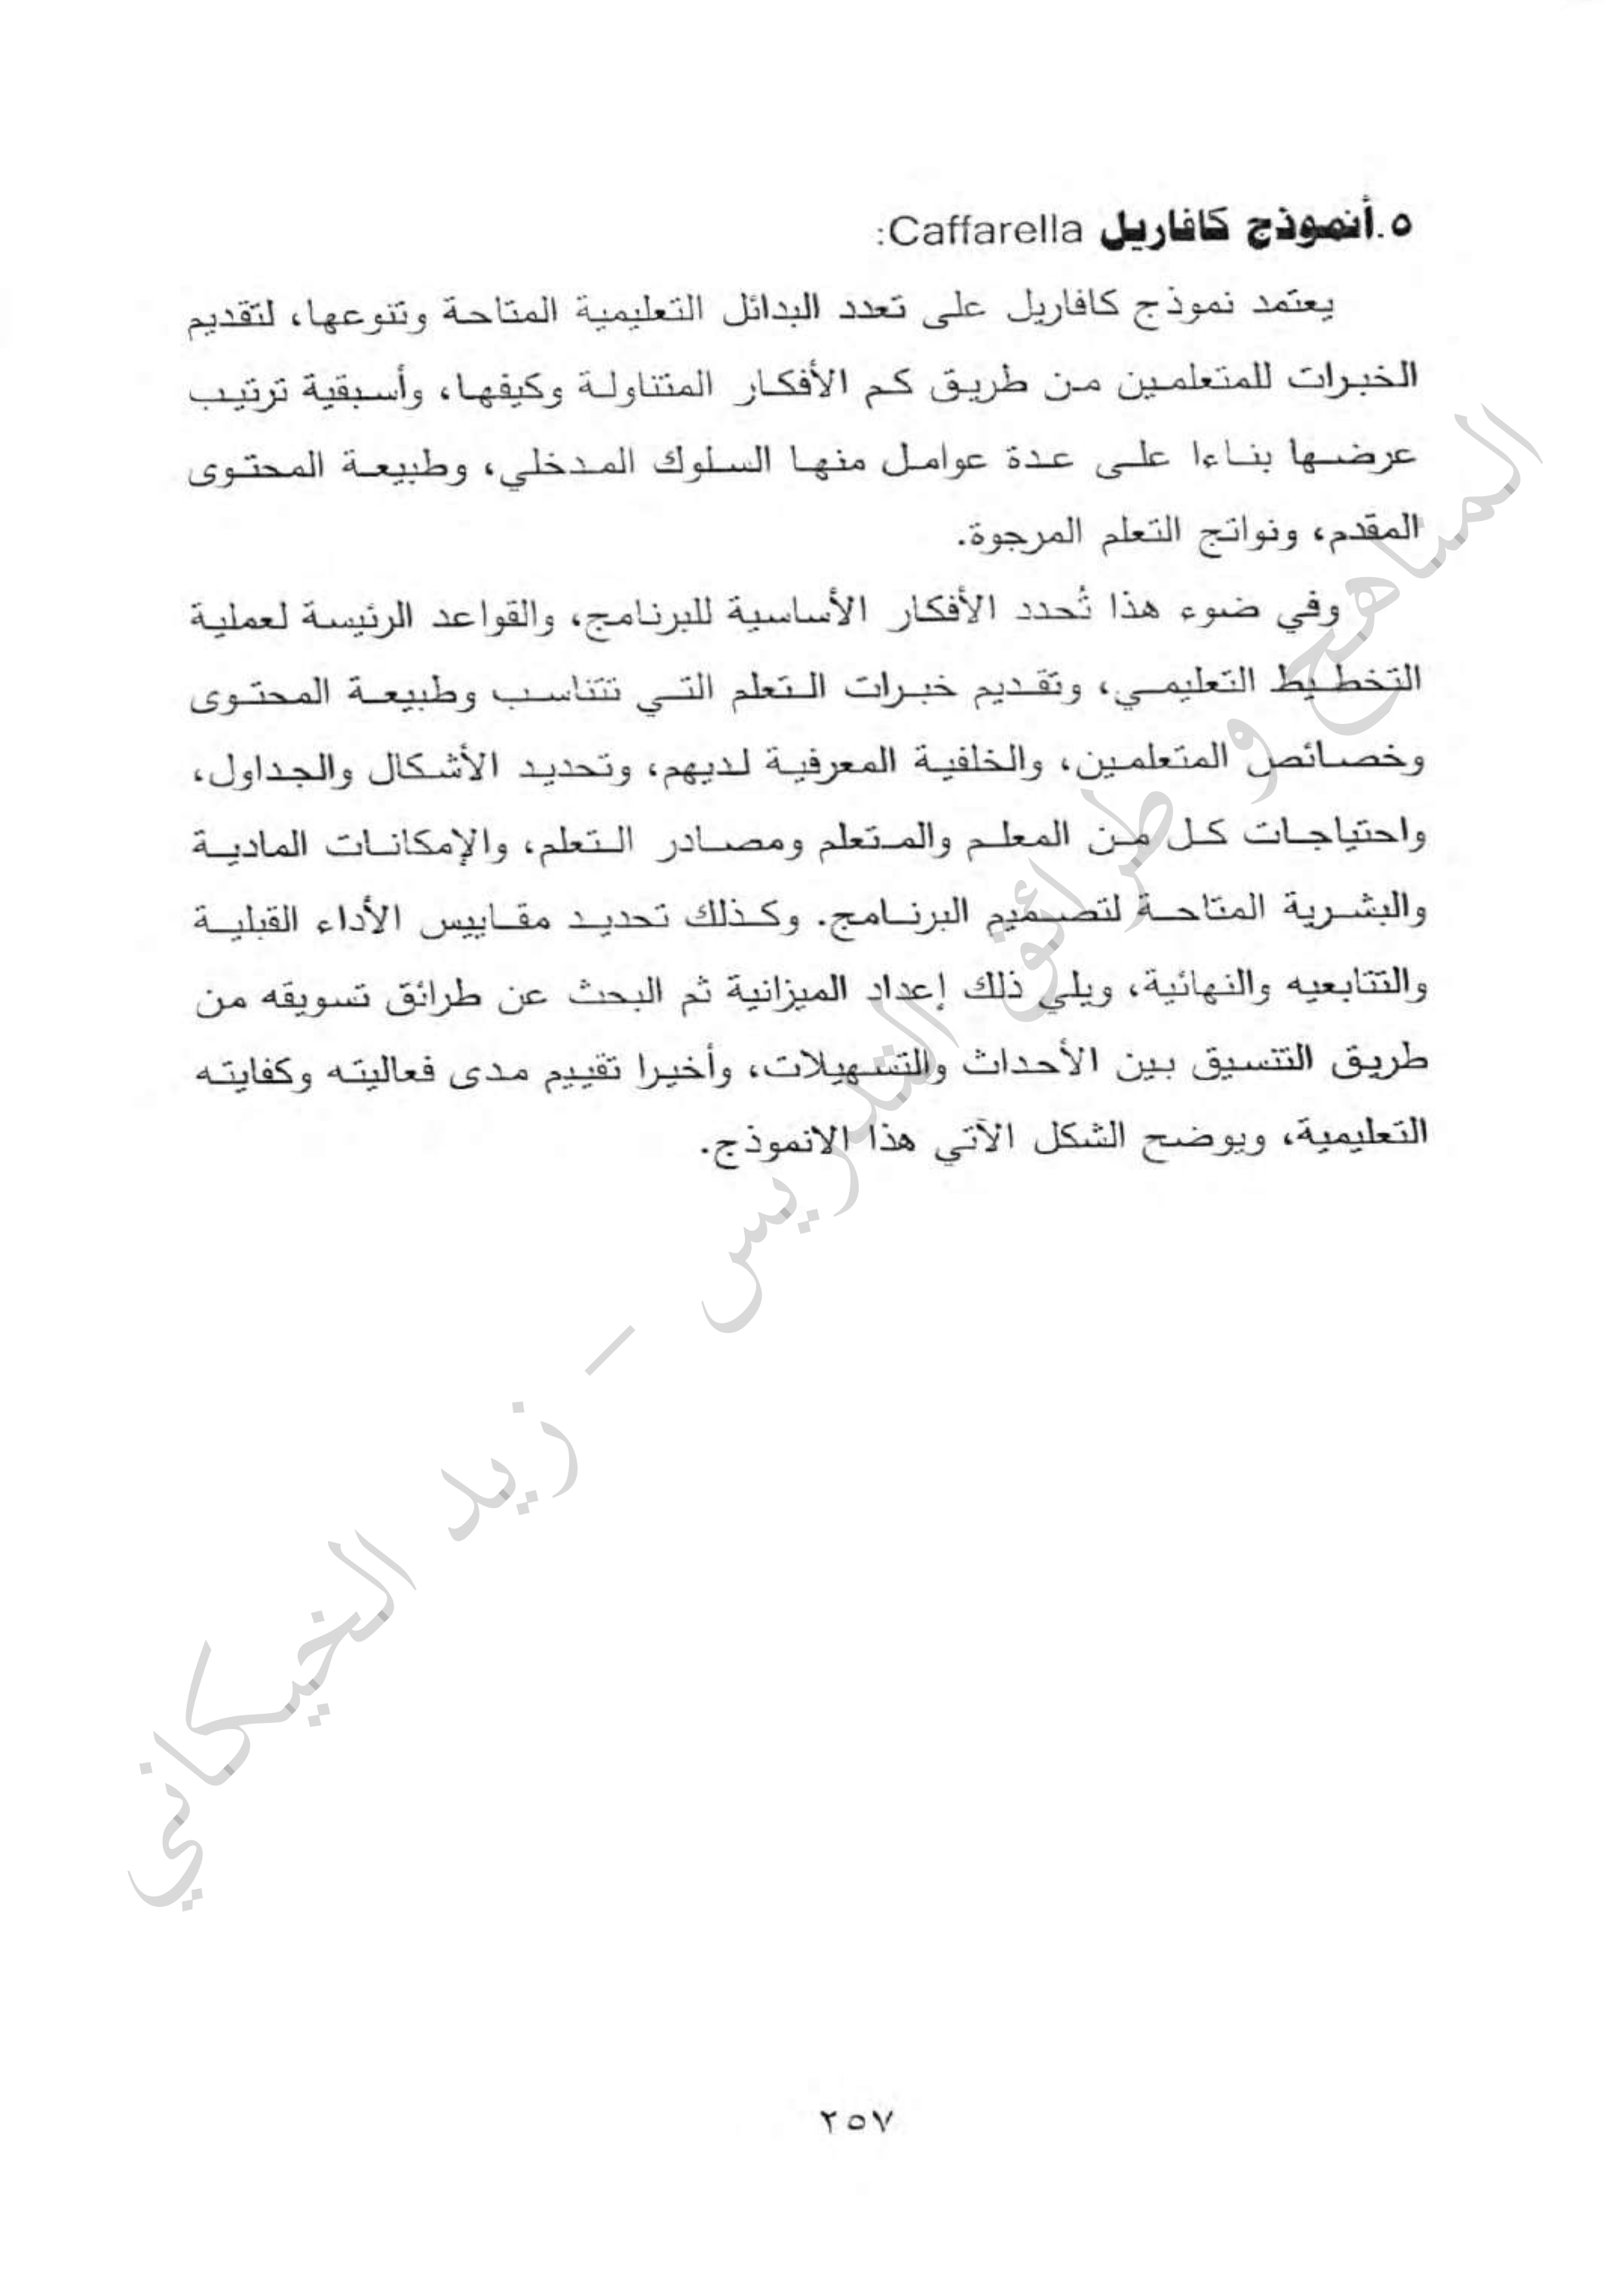 ٥.أنموذج كافاريل Caffarella:
يعتمد نموذج كافاريل على تعدد البدائل التعليمية المتاحة وتنوعها، لتقديم
الخبرات للمتعلمين من طريق كم الأفكار المتناولة وكيفها، وأسبقية ترتيب
عرضها بناءا على عدة عوامل منها السلوك المدخلي، وطبيعة المحتوى
المقدم، ونواتج التعلم المرجوة.
وفي ضوء هذا تُحدد الأفكار الأساسية للبرنامج، والقواعد الرئيسة لعملية
التخطيط التعليمي، وتقديم خبرات التعلم التي تتناسب وطبيعة المحتوى
وخصائص المتعلمين، والخلفية المعرفية لديهم، وتحديد الأشكال والجداول،
واحتياجات كل من المعلم والمتعلم ومصادر التعلم، والإمكانات المادية
والبشرية المتاحة لتصميم البرنامج. وكذلك تحديد مقاييس الأداء القبلية
والتتابعيه والنهائية، ويلي ذلك إعداد الميزانية ثم البحث عن طرائق تسويقه من
طريق التنسيق بين الأحداث والتسهيلات، وأخيرا تقييم مدى فعاليته وكفايته
التعليمية، ويوضح الشكل الآتي هذا الانموذج.
المناهج و طرائق التدريس – زيد الخيكاني
٢٥٧